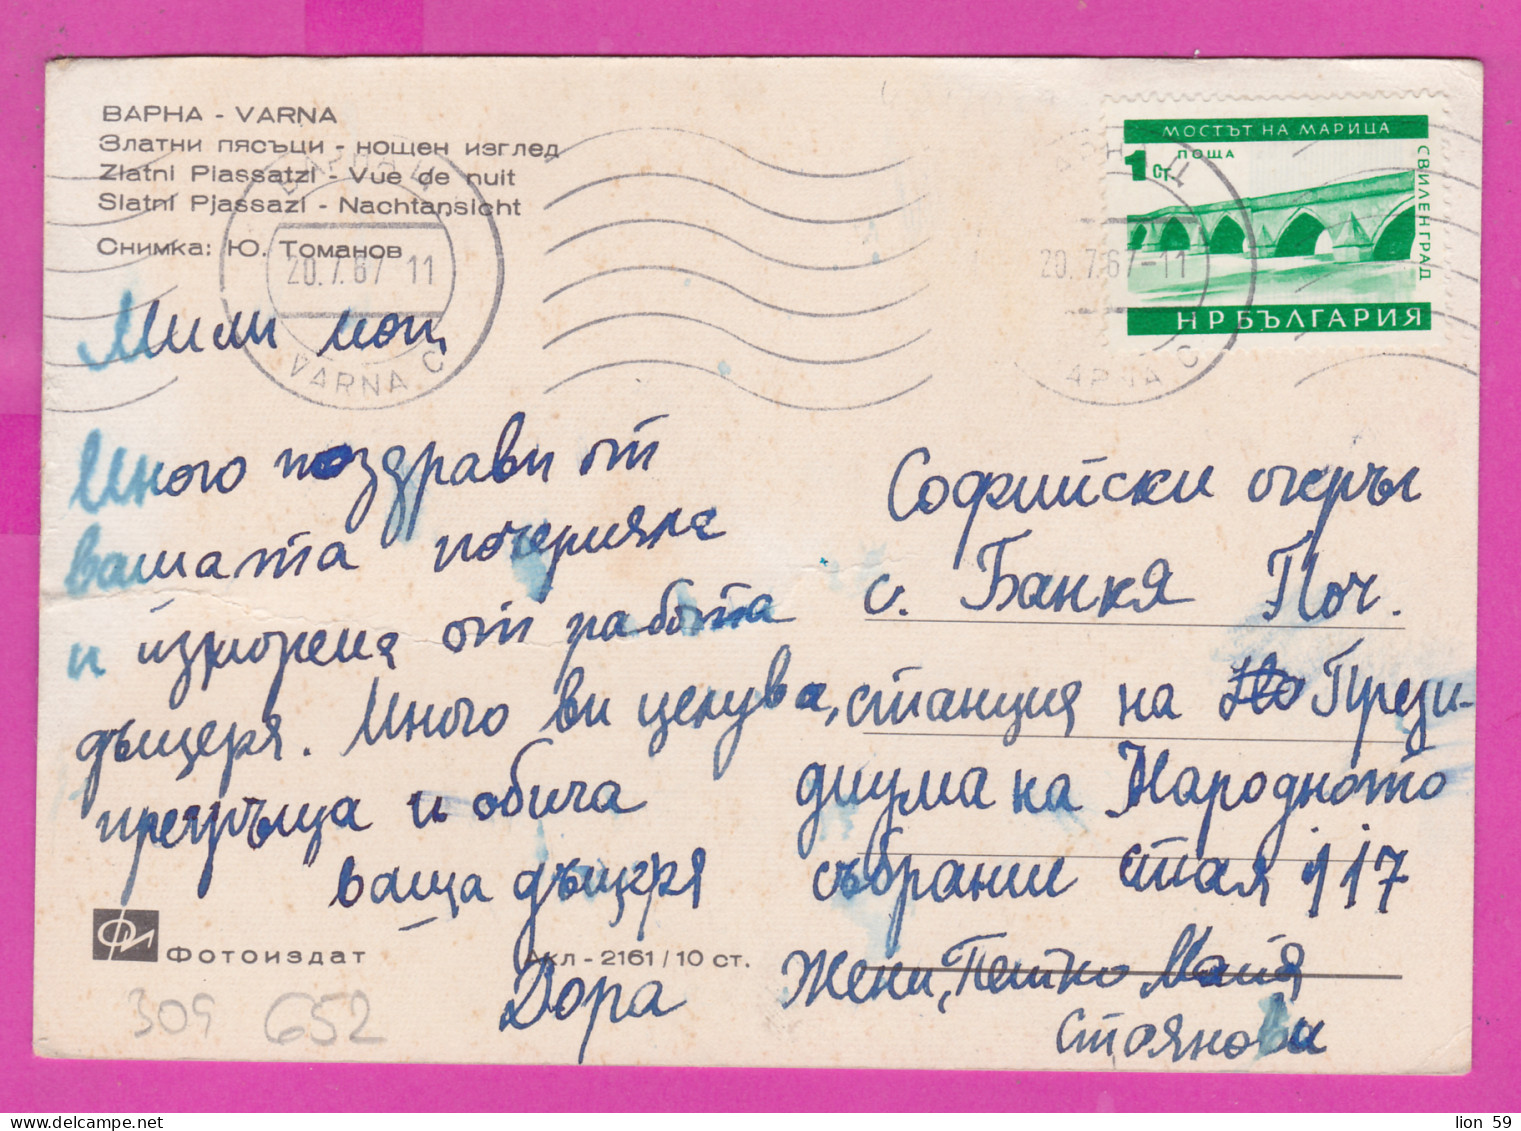 ВАРНА - VARNA
Златни пясъци - нощен изглед
Zlatni Piassatzi - Vue de nuit
Slatni Pjassazi - Nachtansicht
Снимка: Ю. Томанов
20.7.67-11
VARNA C
20.7.67-11
МОСТЪТ НА МАРИЦА
1 ст ПОЩА
СВИЛЕНГРАД
НР БЪЛГАРИЯ
Мили мои,
Много поздрави от
вашата почерняла
и изморена от работа
дъщеря. Много ви целува,
прегръща и обича
ваща дъщеря
Дора
Софийски окръг
с. Банкя Поч.
станция на Прези-
диума на Народното
събрание стая 117
Жени, Петко Майя
Стоянови
Фотоиздат
Акл - 2161 / 10 ст.
309 652
lion 59